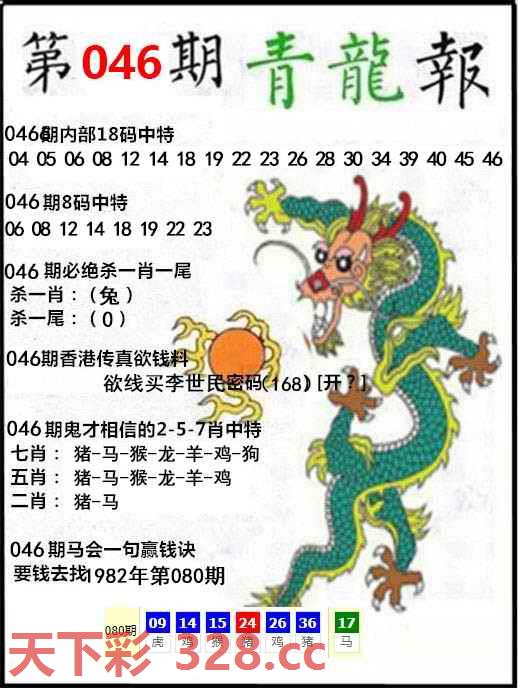 第046期 青龍報
046期内部18码中特
04 05 06 08 12 14 18 19 22 23 26 28 30 34 39 40 45 46
046期8码中特
06 08 12 14 18 19 22 23
046期必绝杀一肖一尾
杀一肖：(兔)
杀一尾：(0)
046期香港传真欲钱料
欲线买李世民密码(168)[开?]
046期鬼才相信的2-5-7肖中特
七肖： 猪-马-猴-龙-羊-鸡-狗
五肖： 猪-马-猴-龙-羊-鸡
二肖： 猪-马
046期马会一句赢钱诀
要钱去找1982年第080期
080期 09 14 15 24 26 36 17
虎 鸡 猴 猪 鸡 猪 马
天下彩 328.cc